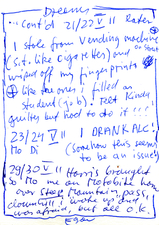 Dreams
cont'd 21/22 V II Later
I stole from vending machine
(s.t. like cigarettes) and
wiped off my fingerprints
like the ones I filled as
student (job). Felt kinda
guilty but had to do it !!!
23/24 V II I DRANK ALC!
Mo Di (somehow this seems
to be an issue)
29/30 V II Harris brought
So Mo me on Motobike home
over steep mountain pass,
downhill I woke up and I
was afraid, but all O.K.